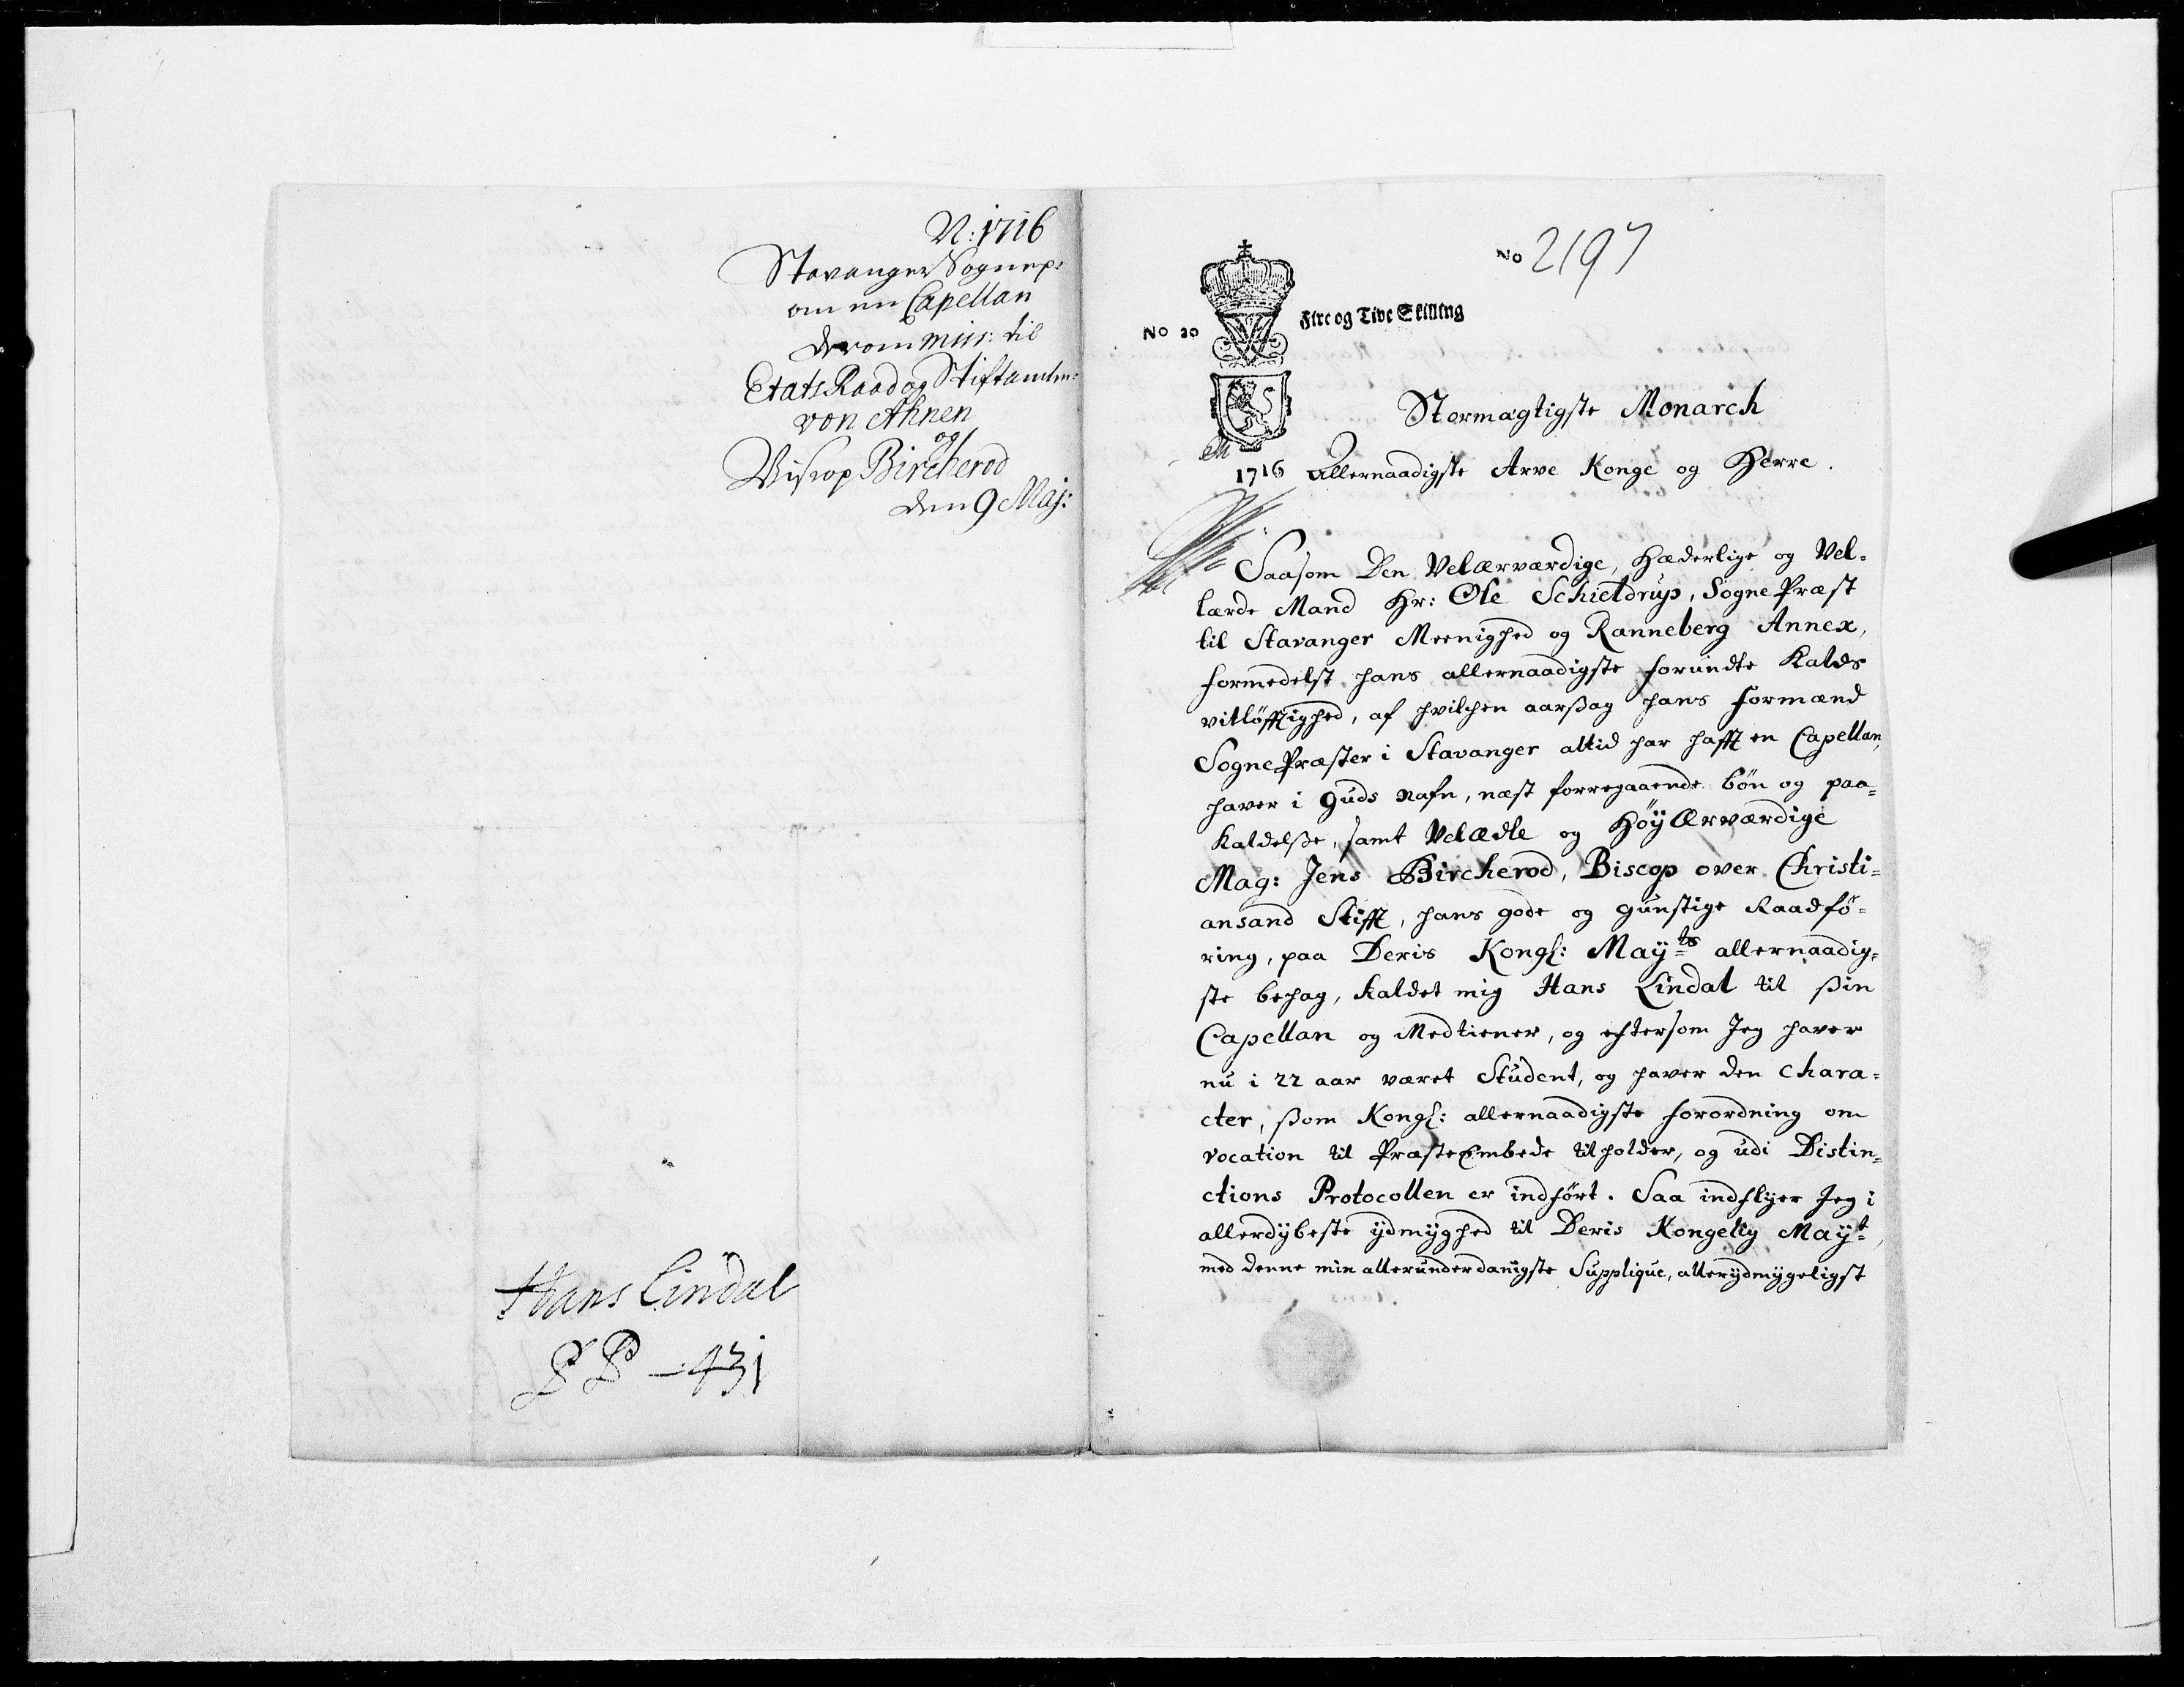 N: 1716
Stavanger Sognep:
om en Capellan
derom miss: til
Etats Raad og Stiftamtm:
von Ahnen
og
Biscop Bircherod
den 9 Maj:
Hans Lindal
P P - 431
No 2197
No 20
Fire og Tive Skilling
1716
Stormægtigste Monarch
Allernaadigste Arve Konge og Herre.
Saasom Den Velærværdige, Hæderlige og Vel-
lærde Mand Hr: Ole Schieldrup, Sogne Præst
til Stavanger Meenighed og Ranneberg Annex,
formedelst hans allernaadigste forundte Kalds
vitløfftighed, af hvilchen aarßag hans formænd
Sogne Præster i Stavanger altid har hafft en Capellan,
haver i Guds Nafn, næst forregaaende bön og paa-
kaldelße, samt Velædle og HöyÆrværdige
Mag: Jens Bircherod, Biscop over Christi-
ansand Stifft, hans gode og gunstige Raadfö-
ring, paa Deris Kongl: Maÿts allernaadig-
ste behag, kaldet mig Hans Lindal til ßin
Capellan og Medtiener, og eftersom Jeg haver
nu i 22 aar været Student, og haver den chara-
cter, ßom Kongl: allernaadigste forordning om
vocation til PræsteEmbede tilholder, og udi Distin-
ctions Protocollen er indfört. Saa indflyer Jeg i
allerdÿbeste ÿdmÿghed til Deris Kongelig Maÿt,
med denne min allerunderdanigste Supplique, allerÿdmÿgeligst